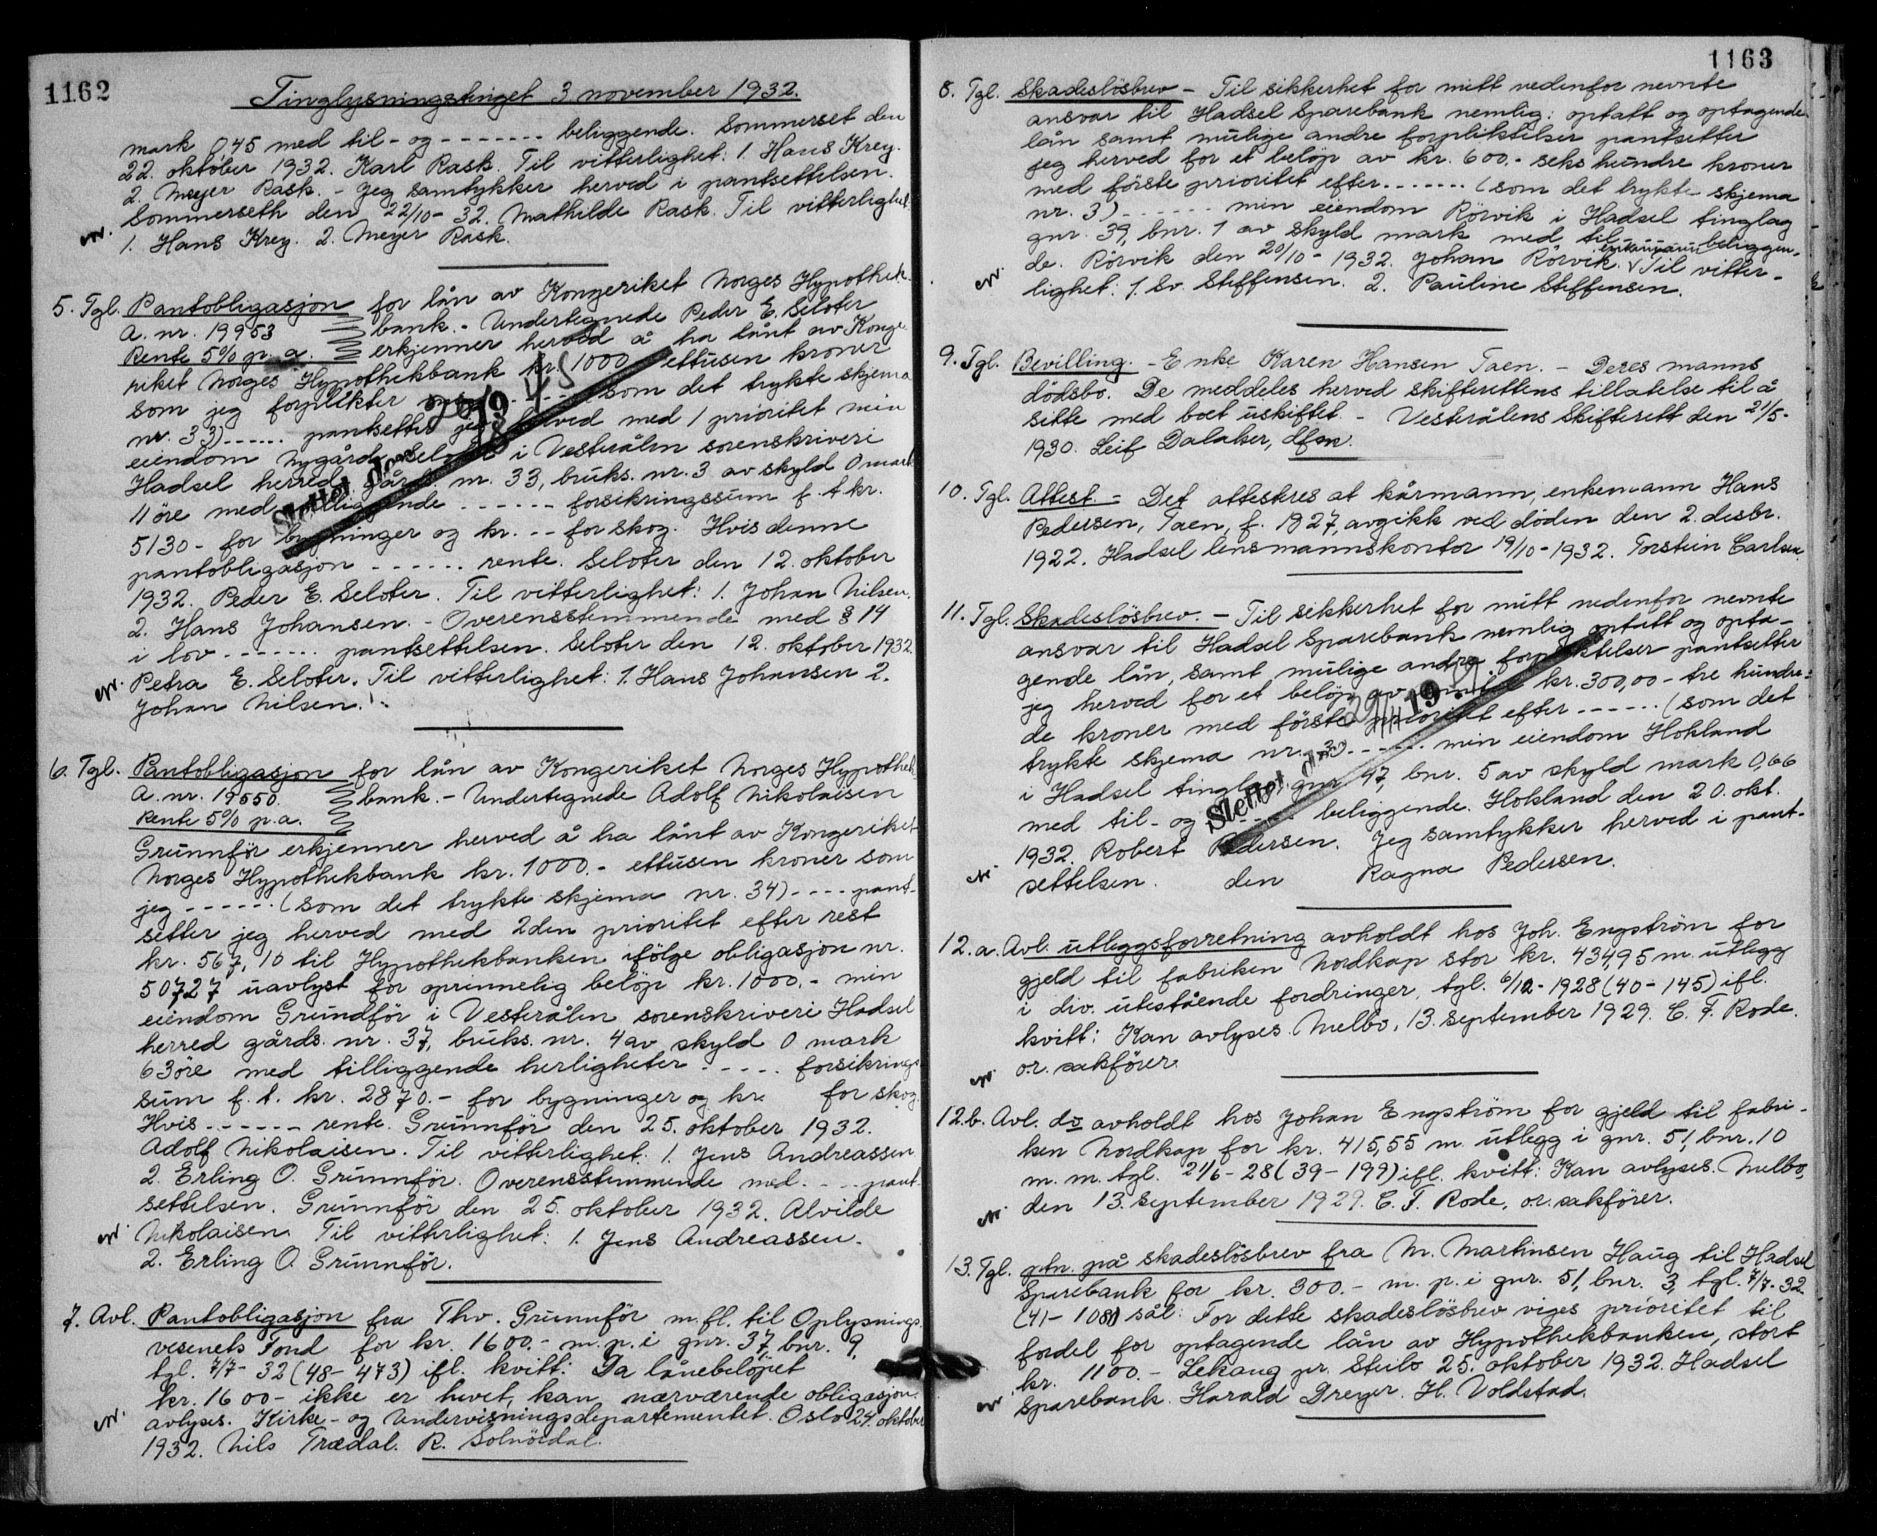 1162
Tinglysningstinget 3 november 1932.
mark 0,45 med til- og ------- beliggende. Sommerset den
22. oktober 1932. Karl Rask. Til vitterlighet: 1. Hans Krey.
2. Meyer Rask. - Jeg samtykker herved i pantsettelsen.
Sommerseth den 22/10-32. Mathilde Rask. Til vitterlighet:
1. Hans Krey. 2. Meyer Rask.
5. Tgl. Pantobligasjon for lån av Kongeriket Norges Hypothek-
A. nr. 19953 bank. - Undertegnede Peder E. Seloter
Rente 5% p. a. erkjenner herved å ha lånt av Konge-
riket Norges Hypothekbank kr. 1000 ettusen kroner
som jeg forplikter som det trykte skjema
nr. 33) ------ pantsetter jeg herved med 1 prioritet min
eiendom Nygård Seloter i Vesterålen sorenskriveri
Hadsel herred gårds nr. 33, bruks. nr. 3 av skyld 0 mark
11 öre med tilliggende ------ forsikringssum f. t. kr.
5130- for bygninger og kr. -- for skog. Hvis denne
pantobligasjon ------ rente. Seloter den 12. oktober
1932. Peder E. Seloter. Til vitterlighet: 1. Johan Nilsen.
2. Hans Johansen. - Overensstemmende med § 14
i lov ------- pantsettelsen. Seloter den 12. oktober 1932
Petra E. Seloter. Til vitterlighet: 1. Hans Johansen 2.
Johan Nilsen.
Slettet den 19 45
6. Tgl. Pantobligasjon for lån av Kongeriket Norges Hypothek-
A. nr. 19550. bank. - Undertegnede Adolf Nikolaisen
Rente 5% p.a.
Grunnför erkjenner herved å ha lånt av Kongeriket
Norges Hypothekbank kr. 1000.- ettusen kroner som
jeg ------ (som det trykte skjema nr. 34) ---- pant-
setter jeg herved med 2den prioritet efter rest
kr. 567,10 til Hypothekbanken ifölge obligasjon nr.
50727 uavlyst for oprinnelig belöp kr. 1000.- min
eiendom Grundför i Vesterålen sorenskriveri Hadsel
herred gårds. nr. 37, bruks. nr. 4 av skyld 0 mark
63 öre med tilliggende herligheter ----- forsikrings
sum f. t. kr. 2870.- for bygninger og kr. for skog.
Hvis ------ rente. Grunnför den 25. oktober 1932.
Adolf Nikolaisen. Til vitterlighet: 1. Jens Andreassen
2. Erling O. Grunnför. Overensstemmende med. --- pant-
settelsen. Grunnför den 25. oktober 1932. Alvilde
Nikolaisen. Til vitterlighet: 1. Jens Andreassen.
2. Erling O. Grunnför.
7. Avl. Pantobligasjon fra Thv. Grunnför m.fl. til Oplysnings
vesenets Fond for kr. 1600.- m. p. i gnr. 37, bnr. 9,
tgl. 7/7-32 (48-473) ifl. kvitt: Da lånebelöpet
kr. 1600- ikke er hevet, kan nærværende obligasjon
avlyses. Kirke- og Undervisningsdepartementet. Oslo 24. oktober
1932. Nils Trædal. R. Solnördal.
1163
8. Tgl. Skadeslösbrev - Til sikkerhet for mitt nedenfor nevnte
ansvar til Hadsel Sparebank nemlig: optatt og optagende
lån samt mulige andre forpliktelser pantsetter
jeg herved for et belöp av kr. 600.- seks hundre kroner
med förste prioritet efter ------- (som det trykte skjema
nr. 3) ------ min eiendom Rörvik i Hadsel tinglag
gnr. 39, bnr. 1 av skyld mark med til ------ beliggen-
de. Rörvik den 20/10-1932. Johan Rörvik. enkemann Til vitter-
lighet: 1. Sv. Steffensen. 2. Pauline Steffensen.
9. Tgl. Bevilling. - Enke Karen Hansen Taen. - Deres manns
dödsbo. De meddeles herved skifterettens tillatelse til å
sitte med boet uskiftet. - Vesterålens Skifterett den 21/5-
1930. Leif Dalaker, dfm.
10. Tgl. Attest. = Det attesteres at kårmann, enkemann Hans
Pedersen, Taen, f. 1827, avgikk ved döden den 2. desbr.
1922. Hadsel lensmannskontor 19/10-1932. Torstein Carlsen.
11. Tgl. Skadeslösbrev. - Til sikkerhet for mitt nedenfor nevnte
ansvar til Hadsel Sparebank nemlig optatt og opta-
gende lån, samt mulige andre forpliktelser pantsetter
jeg herved for et belöp av kr. 300,00- tre hundre
de kroner med förste prioritet efter ------ (som det
trykte skjema nr. 3) ------ min eiendom Hokland
i Hadsel tinglag gnr. 47, bnr. 5 av skyld mark 0,66
med til- og ------ beliggende. Hokland den 20. okt.
1932. Robert Pedersen. Jeg samtykker herved i pant-
settelsen. den Ragna Pedersen.
Slettet den 19
12. a. Avl. utleggsforretning avholdt hos Joh. Engström for
gjeld til fabriken Nordkap stor kr. 434,95 m. utlegg
i div. utestående fordringer, tgl. 6/12-1928 (40-145) ifl.
kvitt: Kan avlyses. Melbo, 13. september 1929. C. F. Rode.
o.r. sakförer.
12.b. Avl. do avholdt hos Johan Engström for gjeld til fabri-
ken Nordkap for kr. 415,55 m. utlegg i gnr. 51, bnr. 10
m. m. tgl. 21/6-28 (39-199) ifl. kvitt: Kan avlyses. Melbo,
den 13. september 1929. C. F. Rode, o.r. sakförer.
13. Tgl. ptn. på skadeslösbrev fra M. Martinsen Haug til Hadsel
Sparebank for kr. 300.- m. p. i gnr. 51, bnr. 3, tgl. 7/7-32
(41-108) sål: For dette skadeslösbrev viges prioritet til
fordel for optagende lån av Hypothekbanken, stort
kr. 1100.- Lekang pr. Steilo 25. oktober 1932. Hadsel
Sparebank. Harald Dreyer. H. Voldstad.